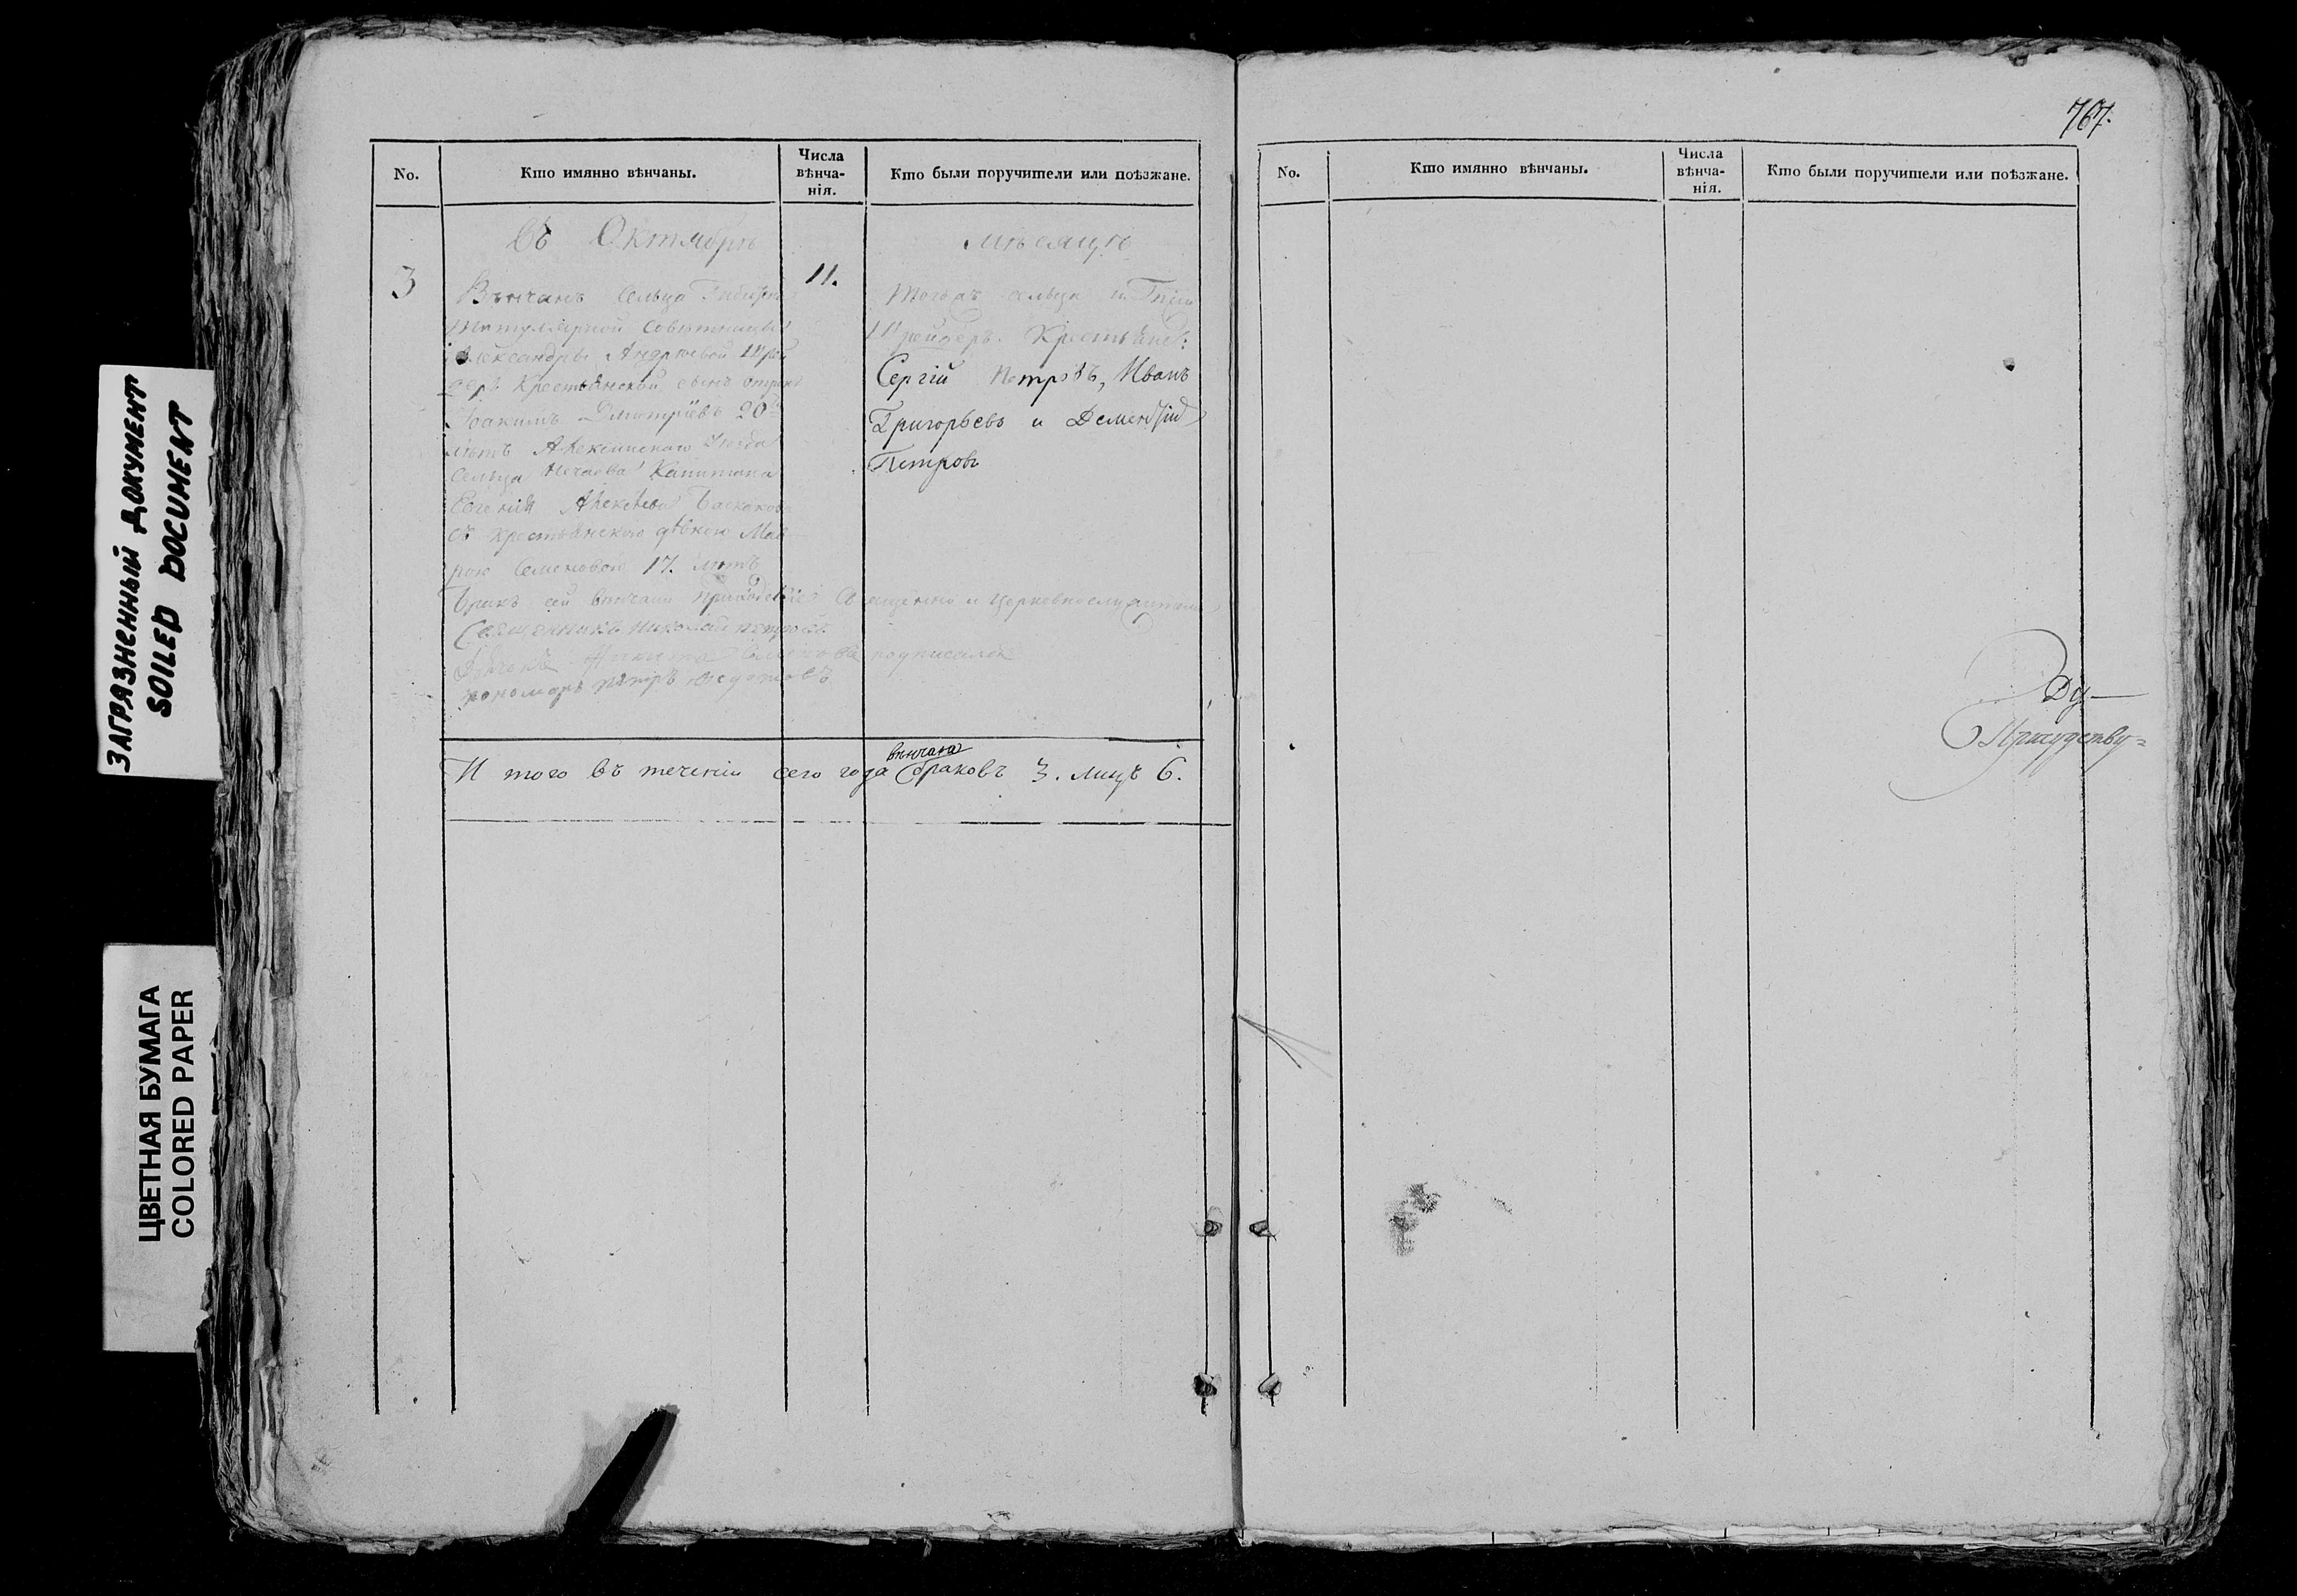 ЗАГРЯЗНЕННЫЙ ДОКУМЕНТ
SOILED DOCUMENT
ЦВЕТНАЯ БУМАГА
COLORED PAPER
No.
Кто имянно вѣнчаны.
Числа
вѣнча-
нія.
Кто были поручители или поѣзжане.
Въ Октябрѣ
мѣсяцѣ
3
11.
Вѣнчанъ сельца
Титулярной совѣтницы
Александры Андреевой Шрей
деръ Крестьянской сынъ отрокъ
Іоакимъ Дмитріевъ 20
лѣтъ Алексинскаго уѣзда
сельца Нечаева Капитана
Евгенія Алексѣева Баскакова
съ крестьянскою дѣвкою Мав
рою Семеновой 17. лѣтъ
Бракъ сей вѣнчали приходскіе Священно и церковнослужители
Священникъ Николай Петровъ
Дьячекъ Никита Семеновъ подписался
пономарь Петръ Ѳедотовъ
Тогожъ сельца и Гжи
Шрейдеръ Крестьяне:
Сергій Петровъ, Иванъ
Григорьевъ и Дементій
Петровъ
И того въ теченіи сего года вѣнчано браковъ 3. лицъ 6.
767.
No.
Кто имянно вѣнчаны.
Числа
вѣнча-
нія.
Кто были поручители или поѣзжане.
Ду-
Присудству=